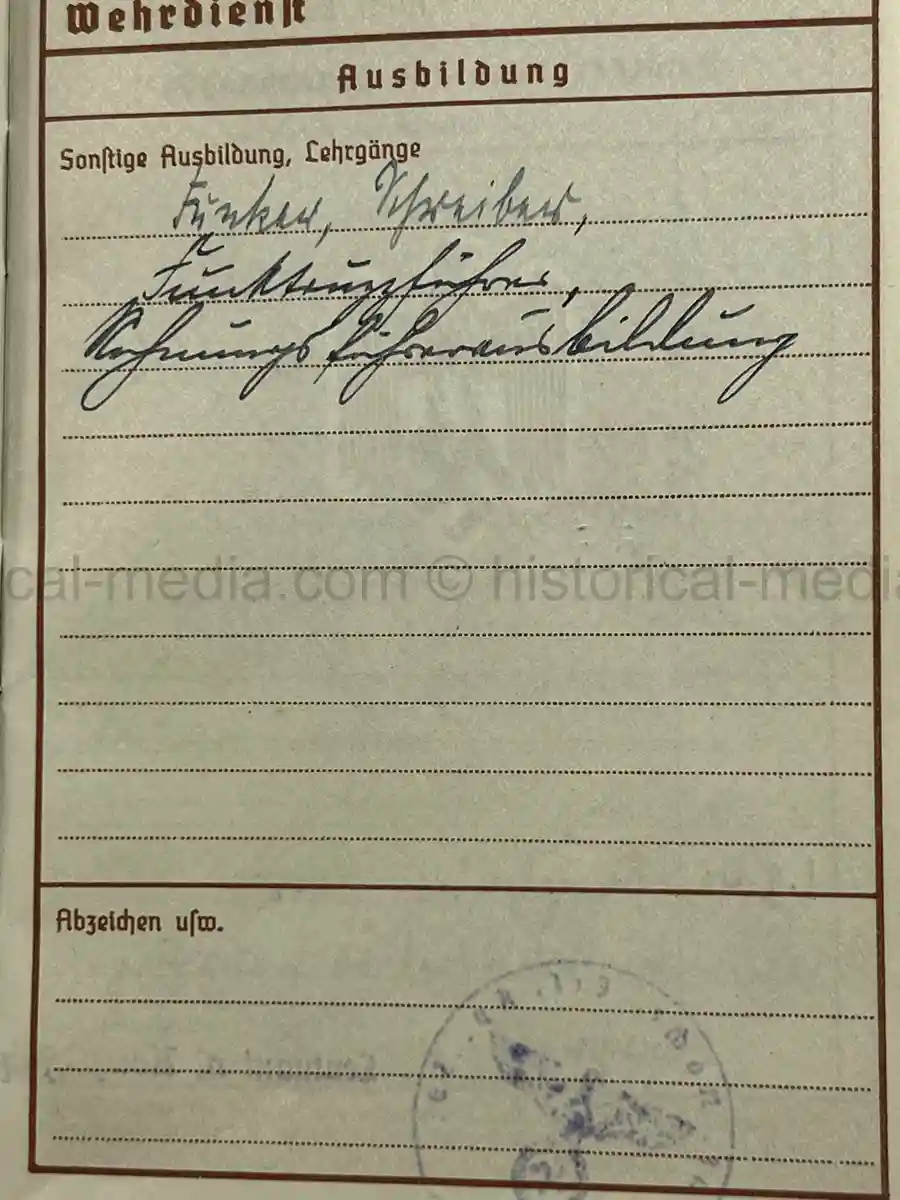 Wehrdienst
Ausbildung
Sonstige Ausbildung, Lehrgänge
Funker, Schreiber,
Funktruppführer,
Rechnungsführerausbildung
cal-media.com © historical-media
Abzeichen usw.